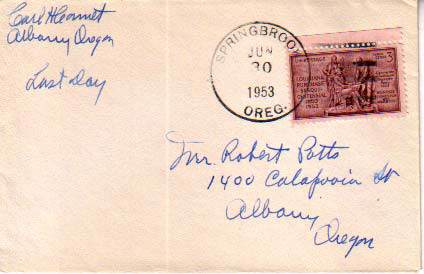 Albany Oregon
Last Day
SPRINGBROOK
JUN
30
1953
OREG.
3
LOUISIANA
PURCHASE
SESQUI-
CENTENNIAL
1803
1953
Mr. Robert Potts
1400 Calapooia St
Albany
Oregon